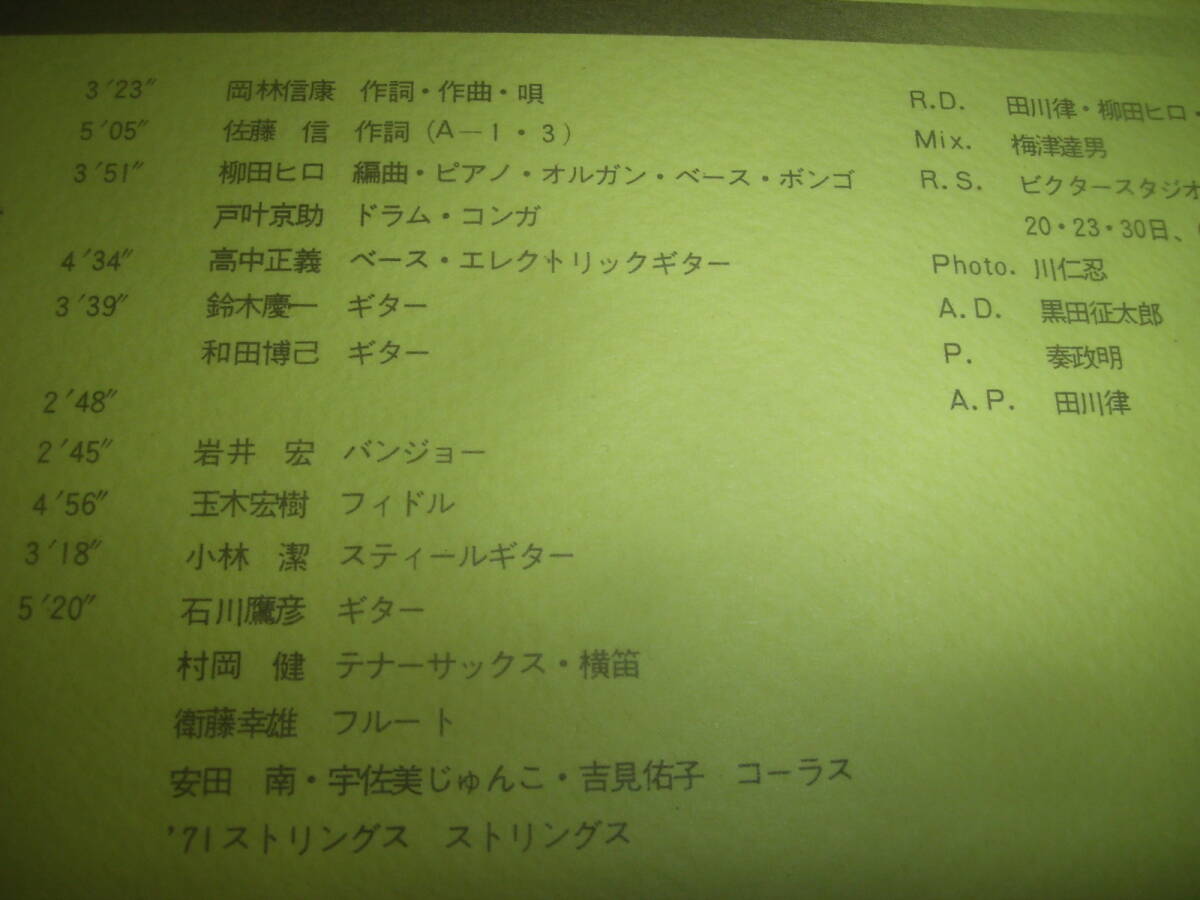 3′23″ 岡林信康 作詞・作曲・唄
5′05″ 佐藤 信 作詞(A-1・3)
3′51″ 柳田ヒロ 編曲・ピアノ・オルガン・ベース・ボンゴ
戸叶京助 ドラム・コンガ
4′34″ 高中正義 ベース・エレクトリックギター
3′39″ 鈴木慶一 ギター
和田博己 ギター
2′48″
2′45″ 岩井 宏 バンジョー
4′56″ 玉木宏樹 フィドル
3′18″ 小林 潔 スティールギター
5′20″ 石川鷹彦 ギター
村岡 健 テナーサックス・横笛
衛藤幸雄 フルート
安田 南・宇佐美じゅんこ・吉見佑子 コーラス
’71ストリングス ストリングス
R.D. 田川律・柳田ヒロ・
Mix. 梅津達男
R.S. ビクタースタジオ
20・23・30日、
Photo. 川仁忍
A.D. 黒田征太郎
P. 秦政明
A.P. 田川律